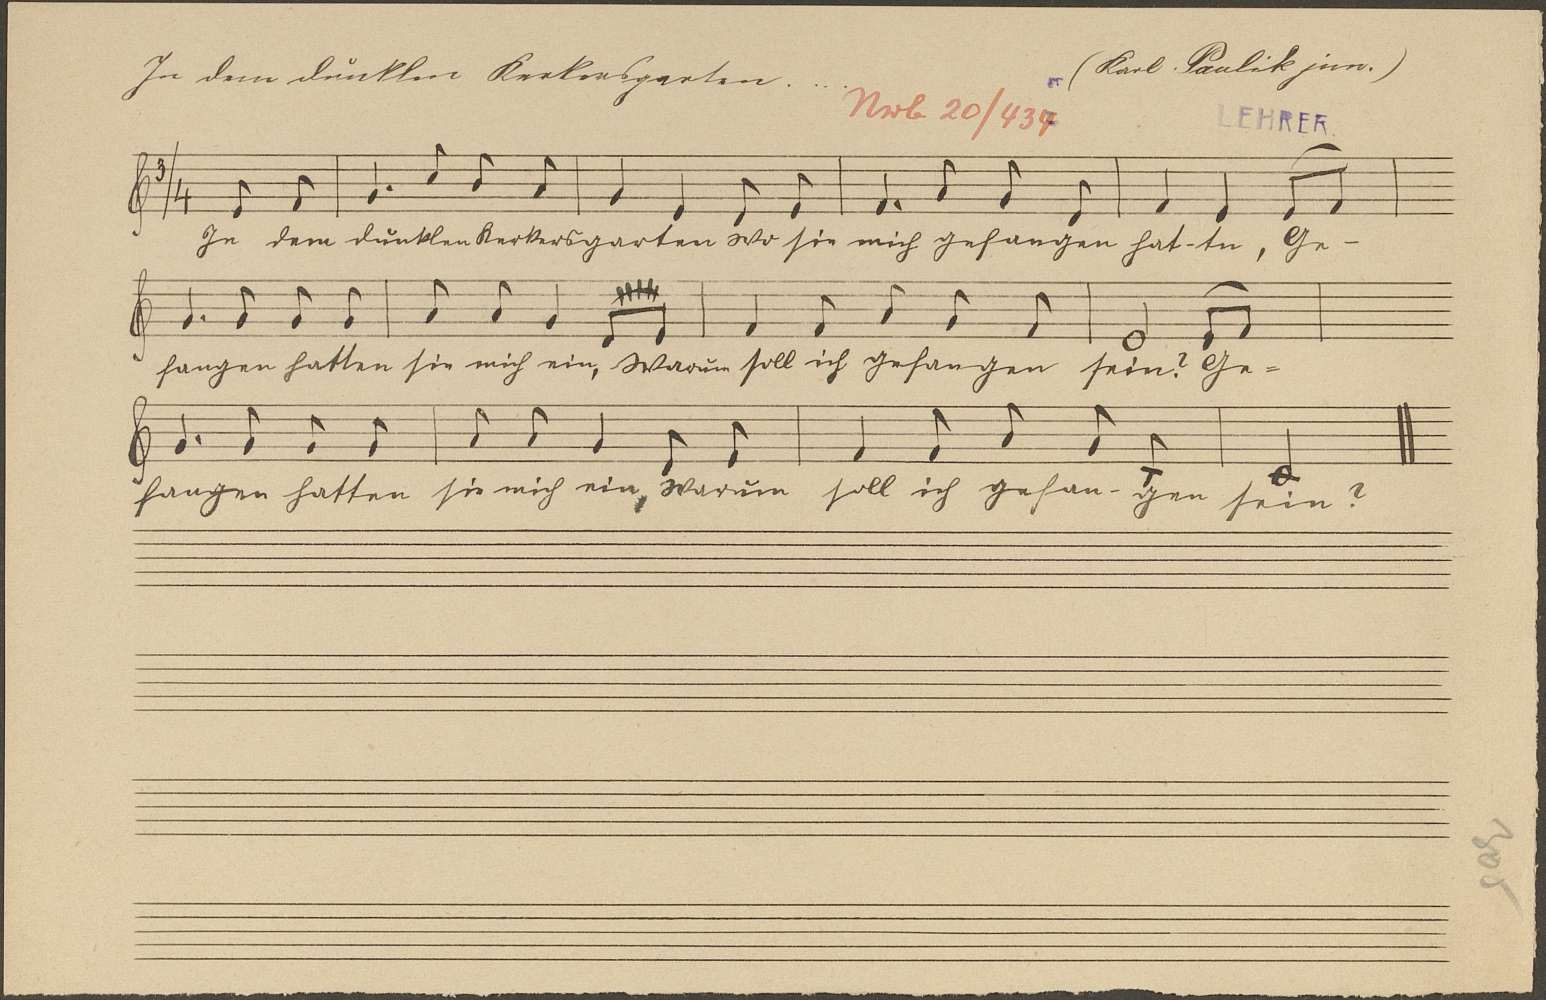 In dem dunklen Kerkersgarten. . . . (Karl Paulik jun.)
Nrb 20/434
LEHRER.
3/4
In dem dunklen Kerkersgarten Wo sie mich gefangen hat-tn, Ge-
fangen hatten sie mich ein, Warum soll ich gefangen sein? Ge=
fangen hatten sie mich ein, Warum soll ich gefan-gen sein?